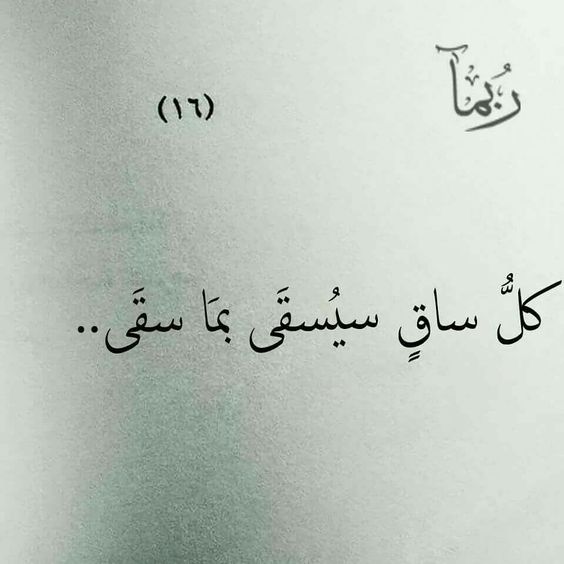 رُبمآ
(١٦)
كلُّ ساقٍ سيُسقَى بمَا سقَى..